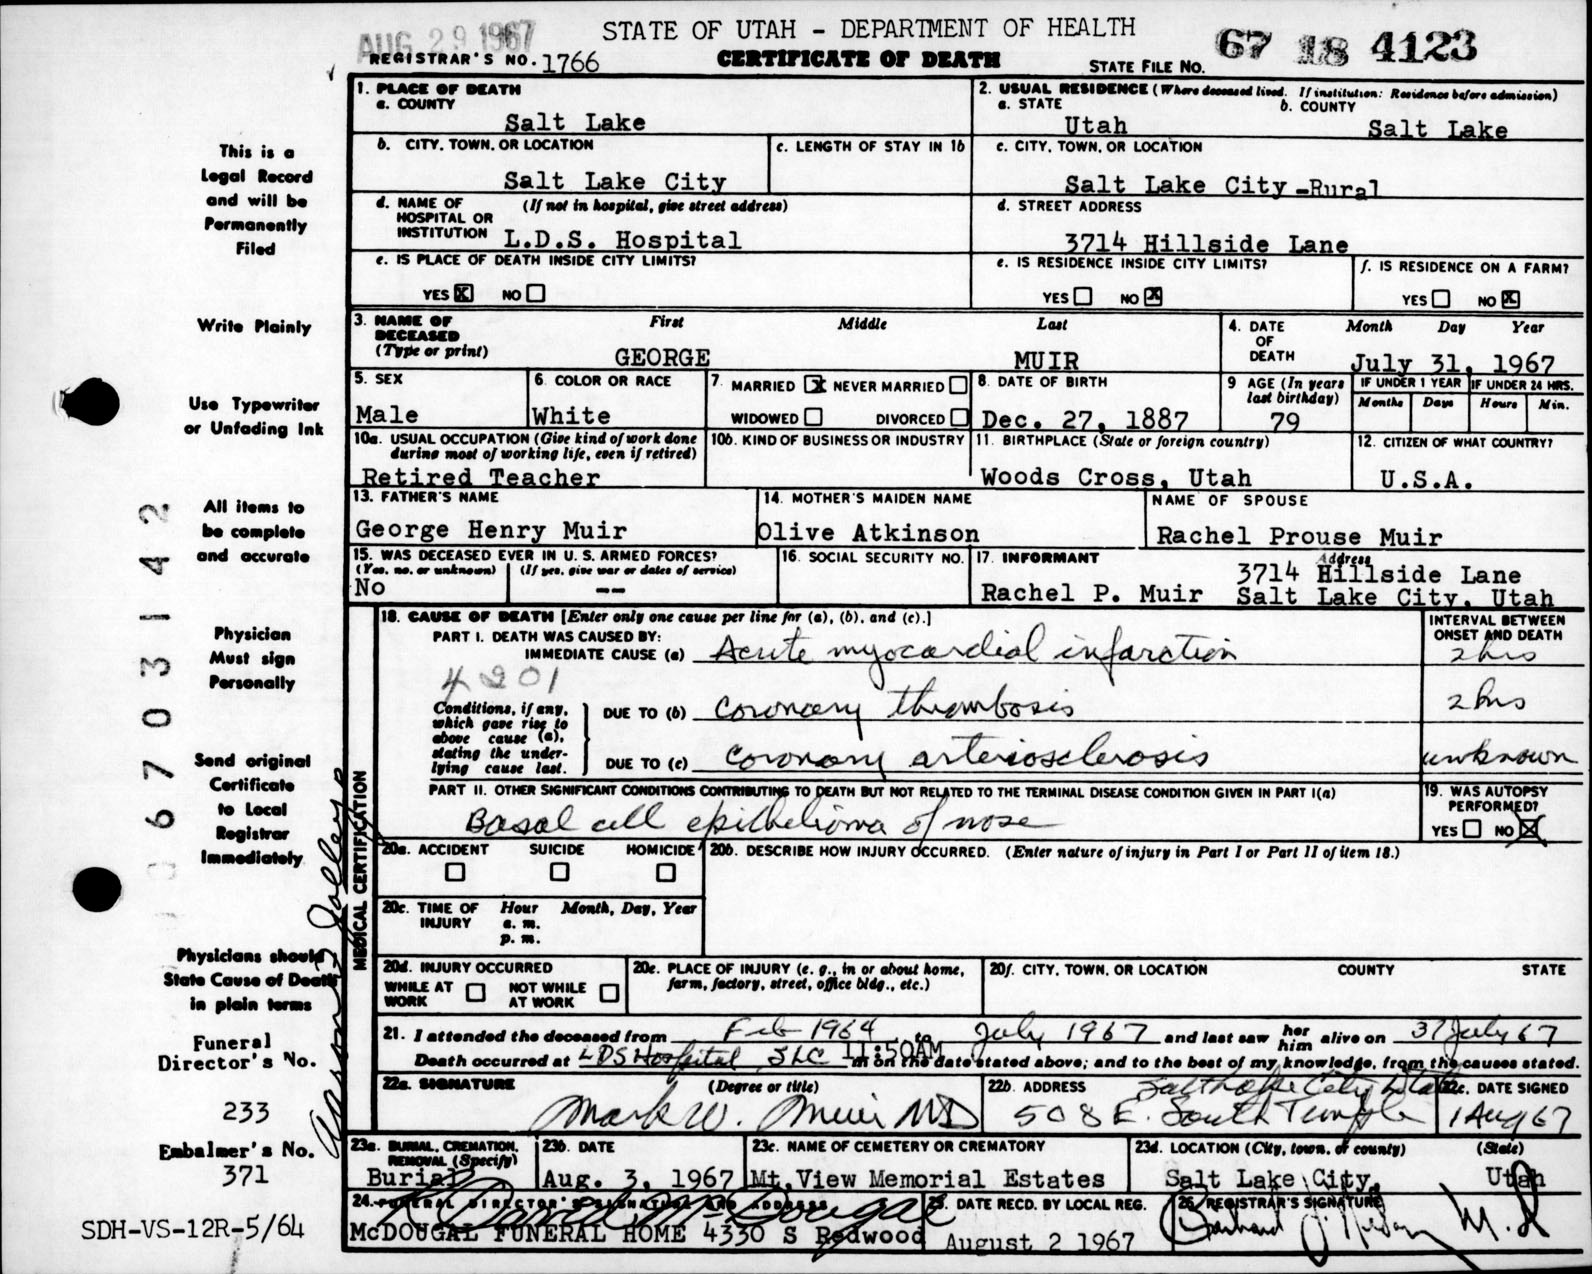 STATE OF UTAH - DEPARTMENT OF HEALTH
AUG 29 1967
CERTIFICATE OF DEATH
REGISTRAR'S NO. 1766
STATE FILE NO. 67 18 4123
1. PLACE OF DEATH
a. COUNTY
Salt Lake
2. USUAL RESIDENCE (Where deceased lived. If institution: Residence before admission)
a. STATE
Utah
b. COUNTY
Salt Lake
b. CITY, TOWN, OR LOCATION
Salt Lake City
c. LENGTH OF STAY IN 1b
c. CITY, TOWN, OR LOCATION
Salt Lake City-Rural
d. NAME OF HOSPITAL OR INSTITUTION
(If not in hospital, give street address)
L.D.S. Hospital
d. STREET ADDRESS
3714 Hillside Lane
e. IS PLACE OF DEATH INSIDE CITY LIMITS?
YES X NO
e. IS RESIDENCE INSIDE CITY LIMITS?
YES NO X
f. IS RESIDENCE ON A FARM?
YES NO X
3. NAME OF DECEASED
(Type or print)
First Middle Last
GEORGE MUIR
4. DATE OF DEATH
Month Day Year
July 31, 1967
5. SEX
Male
6. COLOR OR RACE
White
7. MARRIED X NEVER MARRIED
WIDOWED DIVORCED
8. DATE OF BIRTH
Dec. 27, 1887
9 AGE (In years last birthday)
79
IF UNDER 1 YEAR
Months Days
IF UNDER 24 HRS.
Hours Min.
10a. USUAL OCCUPATION (Give kind of work done
during most of working life, even if retired)
Retired Teacher
10b. KIND OF BUSINESS OR INDUSTRY
11. BIRTHPLACE (State or foreign country)
Woods Cross, Utah
12. CITIZEN OF WHAT COUNTRY?
U.S.A.
13. FATHER'S NAME
George Henry Muir
14. MOTHER'S MAIDEN NAME
Olive Atkinson
NAME OF SPOUSE
Rachel Prouse Muir
15. WAS DECEASED EVER IN U. S. ARMED FORCES?
(Yes, no, or unknown) (If yes, give war or dates of service)
No --
16. SOCIAL SECURITY NO.
17. INFORMANT
Address
Rachel P. Muir
3714 Hillside Lane
Salt Lake City, Utah
18. CAUSE OF DEATH [Enter only one cause per line for (a), (b), and (c).]
INTERVAL BETWEEN ONSET AND DEATH
PART I. DEATH WAS CAUSED BY:
IMMEDIATE CAUSE (a) Acute myocardial infarction 2 hrs
4201
Conditions, if any, which gave rise to above cause (a), stating the underlying cause last.
DUE TO (b) coronary thrombosis 2 hrs
DUE TO (c) coronary arteriosclerosis unknown
PART II. OTHER SIGNIFICANT CONDITIONS CONTRIBUTING TO DEATH BUT NOT RELATED TO THE TERMINAL DISEASE CONDITION GIVEN IN PART I(a)
Basal cell epithelioma of nose
19. WAS AUTOPSY PERFORMED?
YES NO X
MEDICAL CERTIFICATION
20a. ACCIDENT SUICIDE HOMICIDE
20b. DESCRIBE HOW INJURY OCCURRED. (Enter nature of injury in Part I or Part II of item 18.)
20c. TIME OF INJURY
Hour Month, Day, Year
a. m.
p. m.
20d. INJURY OCCURRED
WHILE AT WORK NOT WHILE AT WORK
20e. PLACE OF INJURY (e. g., in or about home,
farm, factory, street, office bldg., etc.)
20f. CITY, TOWN, OR LOCATION COUNTY STATE
21. I attended the deceased from Feb 1964 to July 1967 and last saw her him alive on 31 July 67
Death occurred at LDS Hospital SLC 11:50AM m on the date stated above; and to the best of my knowledge, from the causes stated.
22a. SIGNATURE (Degree or title)
Mark W. Muir MD
22b. ADDRESS
Salt Lake City Utah
508 E. South Temple
22c. DATE SIGNED
1 Aug 67
23a. BURIAL, CREMATION, REMOVAL (Specify)
Burial
23b. DATE
Aug. 3, 1967
23c. NAME OF CEMETERY OR CREMATORY
Mt. View Memorial Estates
23d. LOCATION (City, town, or county) (State)
Salt Lake City, Utah
24. FUNERAL DIRECTOR'S SIGNATURE AND ADDRESS
McDOUGAL FUNERAL HOME 4330 S Redwood
25. DATE RECD. BY LOCAL REG.
August 2 1967
26. REGISTRAR'S SIGNATURE
M.D
This is a
Legal Record
and will be
Permanently
Filed
Write Plainly
Use Typewriter
or Unfading Ink
All items to
be complete
and accurate
Physician
Must sign
Personally
Send original
Certificate
to Local
Registrar
Immediately
Physicians should
State Cause of Death
in plain terms
Funeral
Director's No.
233
Embalmer's No.
371
SDH-VS-12R-5/64
6703142